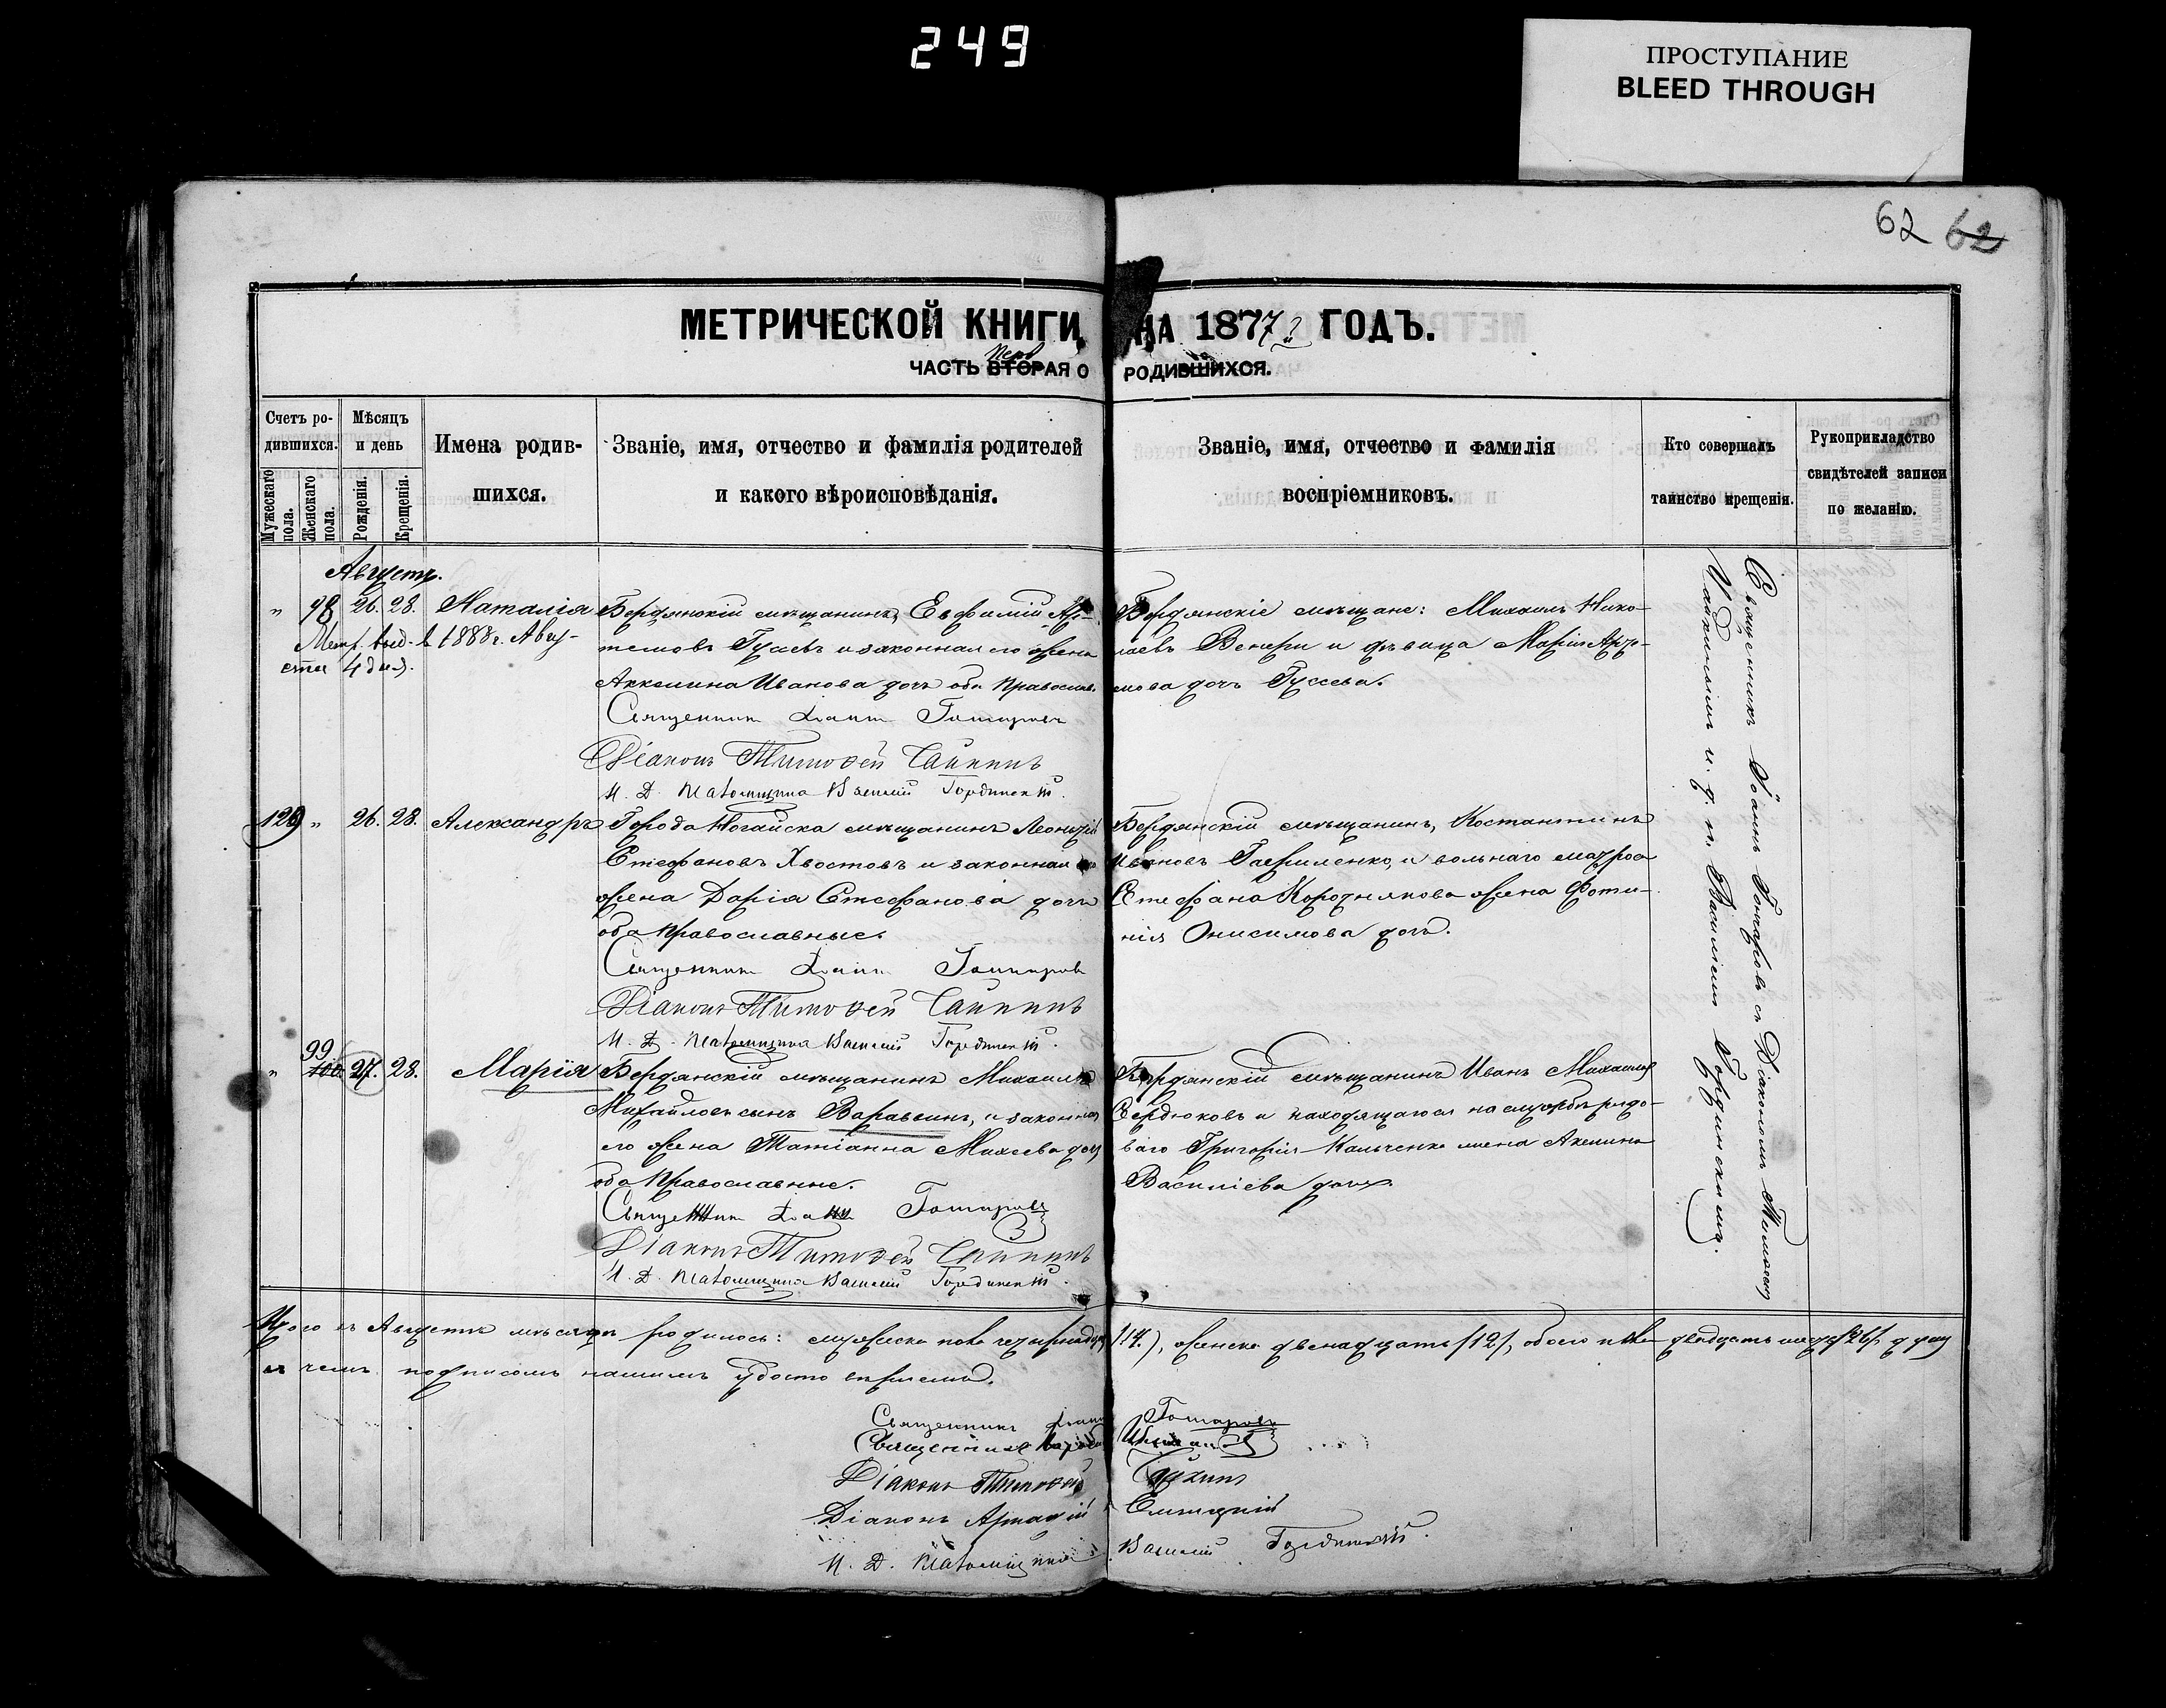 249
ПРОСТУПАНИЕ
BLEED THROUGH
62 62
МЕТРИЧЕСКОЙ КНИГИ НА 1877 ГОДЪ.
Перв
ЧАСТЬ ВТОРАЯ О РОДИВШИХСЯ.
Счетъ ро-
дившихся.
Мужескаго пола.
Женскаго пола.
Мѣсяцъ
и день
Рожденія.
Крещенія.
Имена родив-
шихся.
Званіе, имя, отчество и фамилія родителей
и какого вѣроисповѣданія.
Званіе, имя, отчество и фамилія
воспріемниковъ.
Кто совершалъ
таинство крещенія.
Рукоприкладство
свидѣтелей записи
по желанію.
Августъ.
" 98 26. 28. Наталія
Метр. выд. в 1888 г. Авгу-
ста 4 дня.
Бердянскій мѣщанинъ, Евфимій Ар-
темовъ Гусевъ и законная его жена
Аккелина Иванова дочь оба православ.
Священникъ Іоаннъ Гончаровъ
Діаконъ Тимофей Чайкинъ
И. Д. Псаломщика Василій Гординскій.
Бердянскіе мѣщане: Михаилъ Нико-
лаевъ Венери и дѣвица Марія Арте-
мова дочь Гусева.
120 " 26. 28. Александръ
Города Ногайска мѣщанинъ Леонтій
Стефановъ Хвостовъ и законная его
жена Дарія Стефанова дочь
оба православные.
Священникъ Іоаннъ Гончаровъ
Діаконъ Тимофей Чайкинъ
И. Д. Псаломщика Василій Гординскій.
Бердянскій мѣщанинъ, Костантинъ
Ивановъ Гавриленко, и вольнаго матроса
Стефана Коротнякова жена Фоти-
нія Онисимова дочь.
99
" 100. 27. 28. Марія
Бердянскій мѣщанинъ Михаилъ
Михайловъ сынъ Варавинъ, и законная
его жена Татіанна Михеева дочь
оба православные.
Священникъ Іоаннъ Гончаровъ
Діаконъ Тимофей Чайкинъ
И. Д. Псаломщика Василій Гординскій.
Бердянскій мѣщанинъ Иванъ Михаиловъ
Сердюковъ и находящагося на службѣ рядо-
ваго Григорія Кальченко жена Акелина
Василіева дочь.
Священникъ Іоаннъ Гончаровъ съ Діакономъ Тимофеемъ
Чайкинымъ и. д. п. Василіемъ Гординскимъ.
Итого въ Августѣ мѣсяцѣ родилось: мужеска пола четырнадцать (14.), женска двенадцать (12), обоего пола двадцать шесть (26) душъ
въ чемъ подписомъ нашимъ удостовѣряемъ.
Священникъ Іоаннъ Гончаровъ
Священникъ
Діаконъ Тимофей Чайкинъ
Діаконъ Аркадій
И. Д. Псаломщика Василій Гординскій.